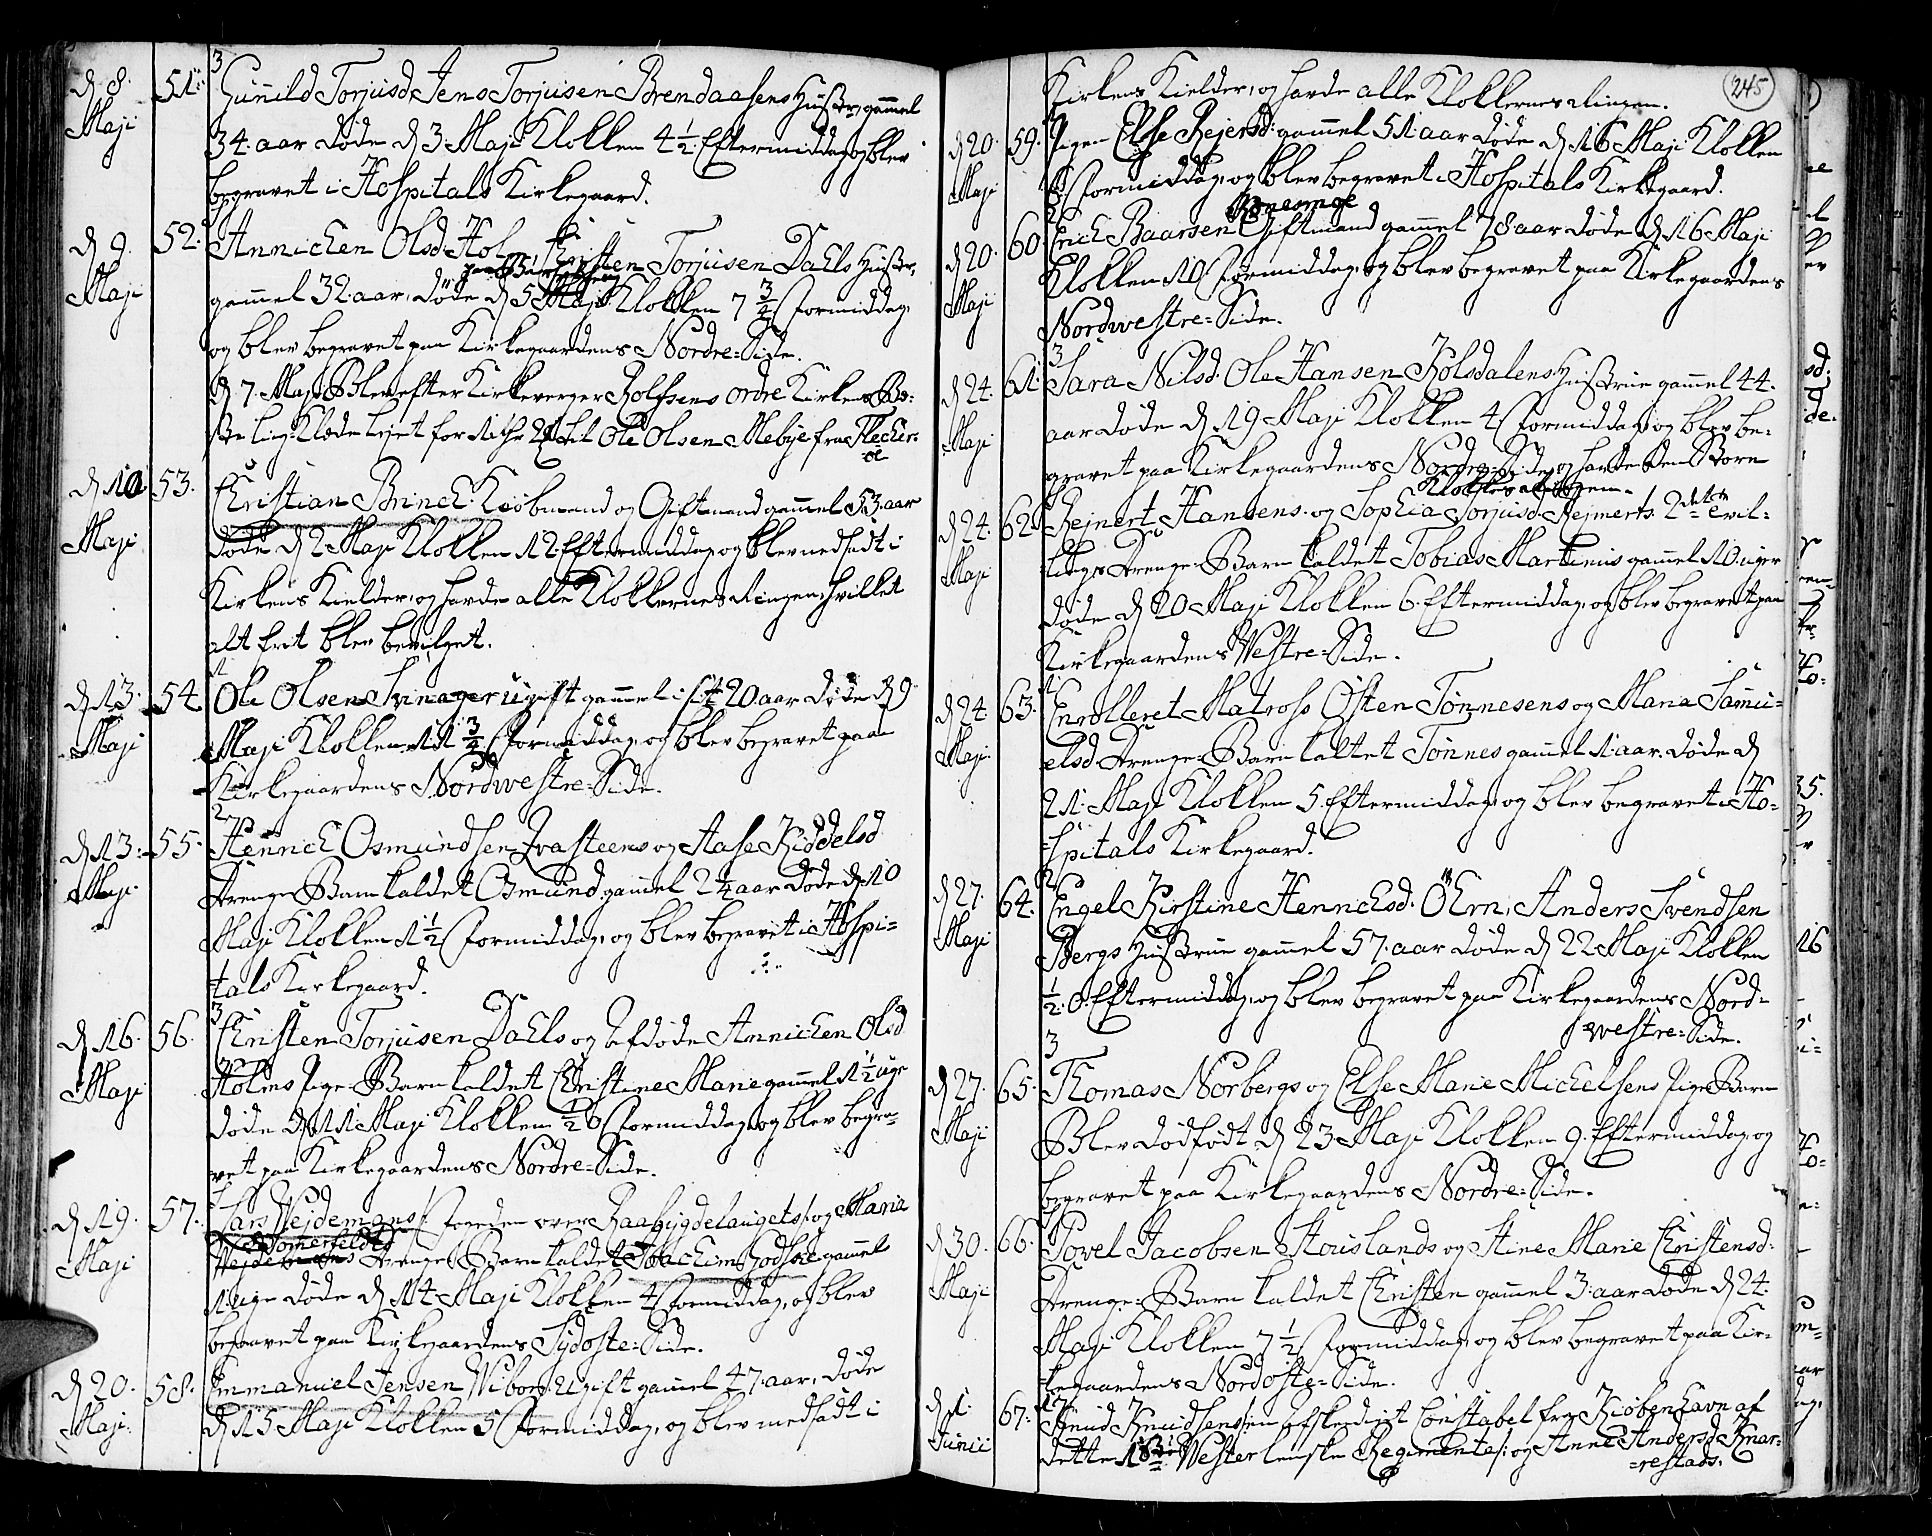 d 8. Maji 51. Gunild Torjusd, Jens Torjusen Brendaasens Hustr, gammel
34. aar døde d 3 Maji Klokken 4½ Eftermiddag og blev
begravet i Hospitals Kirkegaard.
d 9. Maji 52. Annichen Olsd. Holm Christen Torjusen Dahls Hustr,
gammel 32. aar, døde d 5 Maji Klokken 7¾ Formiddag,
og blev begravet paa Kirkegaardens Nordre-Side.
d 7. Maji Blev efter Kirkeverger Rolfsens Ordre Kirkens Be-
ste Lig-Klæde lejet for til Ole Olsen Mebye fra Flecker-
øe
d 10 Maji 53. Christian Brinch. Kiøbmand og Giftmand gammel 53. aar
døde d 2 Maji Klokken 12. Eftermiddag og blev nedsadt i
Kirkens Kielder, og havde alle Klokkernes Ringen, hvilket
alt frit blev bevilget.
d 13. Maji 54. Ole Olsen Svinager ugift gammel i sit 20 aar døde d 9
Maji Klokken 11¾ Formiddag, og blev begravet paa
Kirkegaardens Nordwestre-Side.
d 13. Maji 55. Henrich Osmundsen Ivasteens og Aase Kiddelsd
Drenge-Barn kaldet Osmund gammel 2¼ aar døde d 10
Maji Klokken 1½ Formiddag, og blev begravet i Hospi-
tals Kirkegaard.
d 16. Maji 56. Christen Torjusen Dahls og Afdøde Annichen Olsd
Holms Pige-Barn kaldet Christine Marie gammel 1½ uge
døde d 11 Maji Klokken ½ 0 Formiddag og blev begra-
vet paa Kirkegaardens Nordre-Side.
d 19. Maji 57. Lars Wejdemans /: Foged over Raabygdelauget :/ og Maria
Somerfeldts
Drenge-Barn kaldet Joachim Godtske gammel
1 uge døde d 14 Maji Klokken 4 Formiddag, og blev
begravet paa Kirkegaardens Sydoste-Side.
d 20. Maji 58. Emmanuel Jensen Wiborg. Ugift gammel 47. aar, døde
d 15 Maji Klokken 5 Formiddag, og blev nedsadt i
245
Kirkens Kielder, og havde alle Klokkernes Ringen.
d 20. Maji 59. Pigen Else Rejersd: gammel 51. aar døde d 16 Maji Klokken
Formiddag, og blev begravet i Hospitals Kirkegaard.
d 20. Maji 60. Erich Baarsen Giftmand gammel 78 aar døde d 16 Maji
Klokken 10 Formiddag, og blev begravet paa Kirkegaardens
Nordwestre-Side.
d 24. Maji 61. Sara Nilsd. Ole Hansen Kolsdalens Hustrue gammel 44.
aar døde d 19 Maji Klokken 4 Formiddag, og blev be-
gravet paa Kirkegaardens Nordre-Side, og havde den Store
Klokkes Ringen.
d 24. Maji 62. Rejnert Hansens og Sophia Torjusd Rejnerts 2den Tvil-
lings Drenge-Barn kaldet Tobias Martinus gammel 10. uger
døde d 20 Maji Klokken 6. Eftermiddag, og blev begravet paa
Kirkegaardens Westre-Side.
d 24. Maji 63. Enrolleret Matros Østen Tønnesens og Maria Samu-
elsd Drenge-Barn kaldet Tønnes gammel 1. aar. døde d
21. Maji Klokken 5. Eftermiddag, og blev begravet i Ho-
spitals Kirkegaard.
d 27. Maji 64. Engel Kirstine Henrichsd. Ørn, Anders Svendsen
Bergs Hustrue gammel 57. aar døde d 22 Maji Klokken
½. 0. Eftermiddag, og blev begravet paa Kirkegaardens Nord-
westre-Side.
d 27. Maji 65. Thomas Norbergs og Else Marie Michelsens Pige-Barn
Blev dødfødt d 23 Maji Klokken 9. Eftermiddag og
begravet paa Kirkegaardens Nordre-Side.
d 30. Maji 66. Povel Jacobsen Stouslands og Stine Marie Christensd.
Drenge-Barn kaldet Christen gammel 3. aar døde d 24.
Maji Klokken 7½ Formiddag, og blev begravet paa Kir-
kegaardens Nordoste-Side.
d 1. Junii 67. Knud Knudsens /: en afskediget Constabel fra Kiøbenhavn af
dette Westerlenske Regimente :/ og Anne Andersd Knar-
restads.